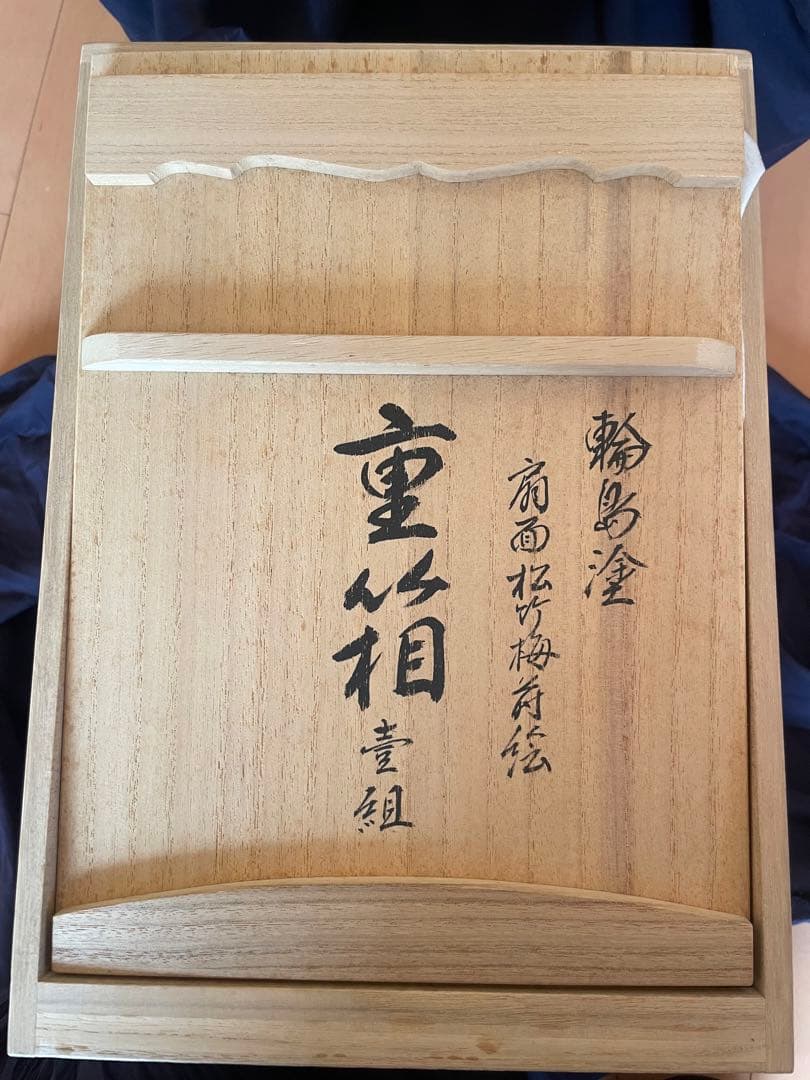 輪島塗
扇面松竹梅蒔絵
重箱
壹組